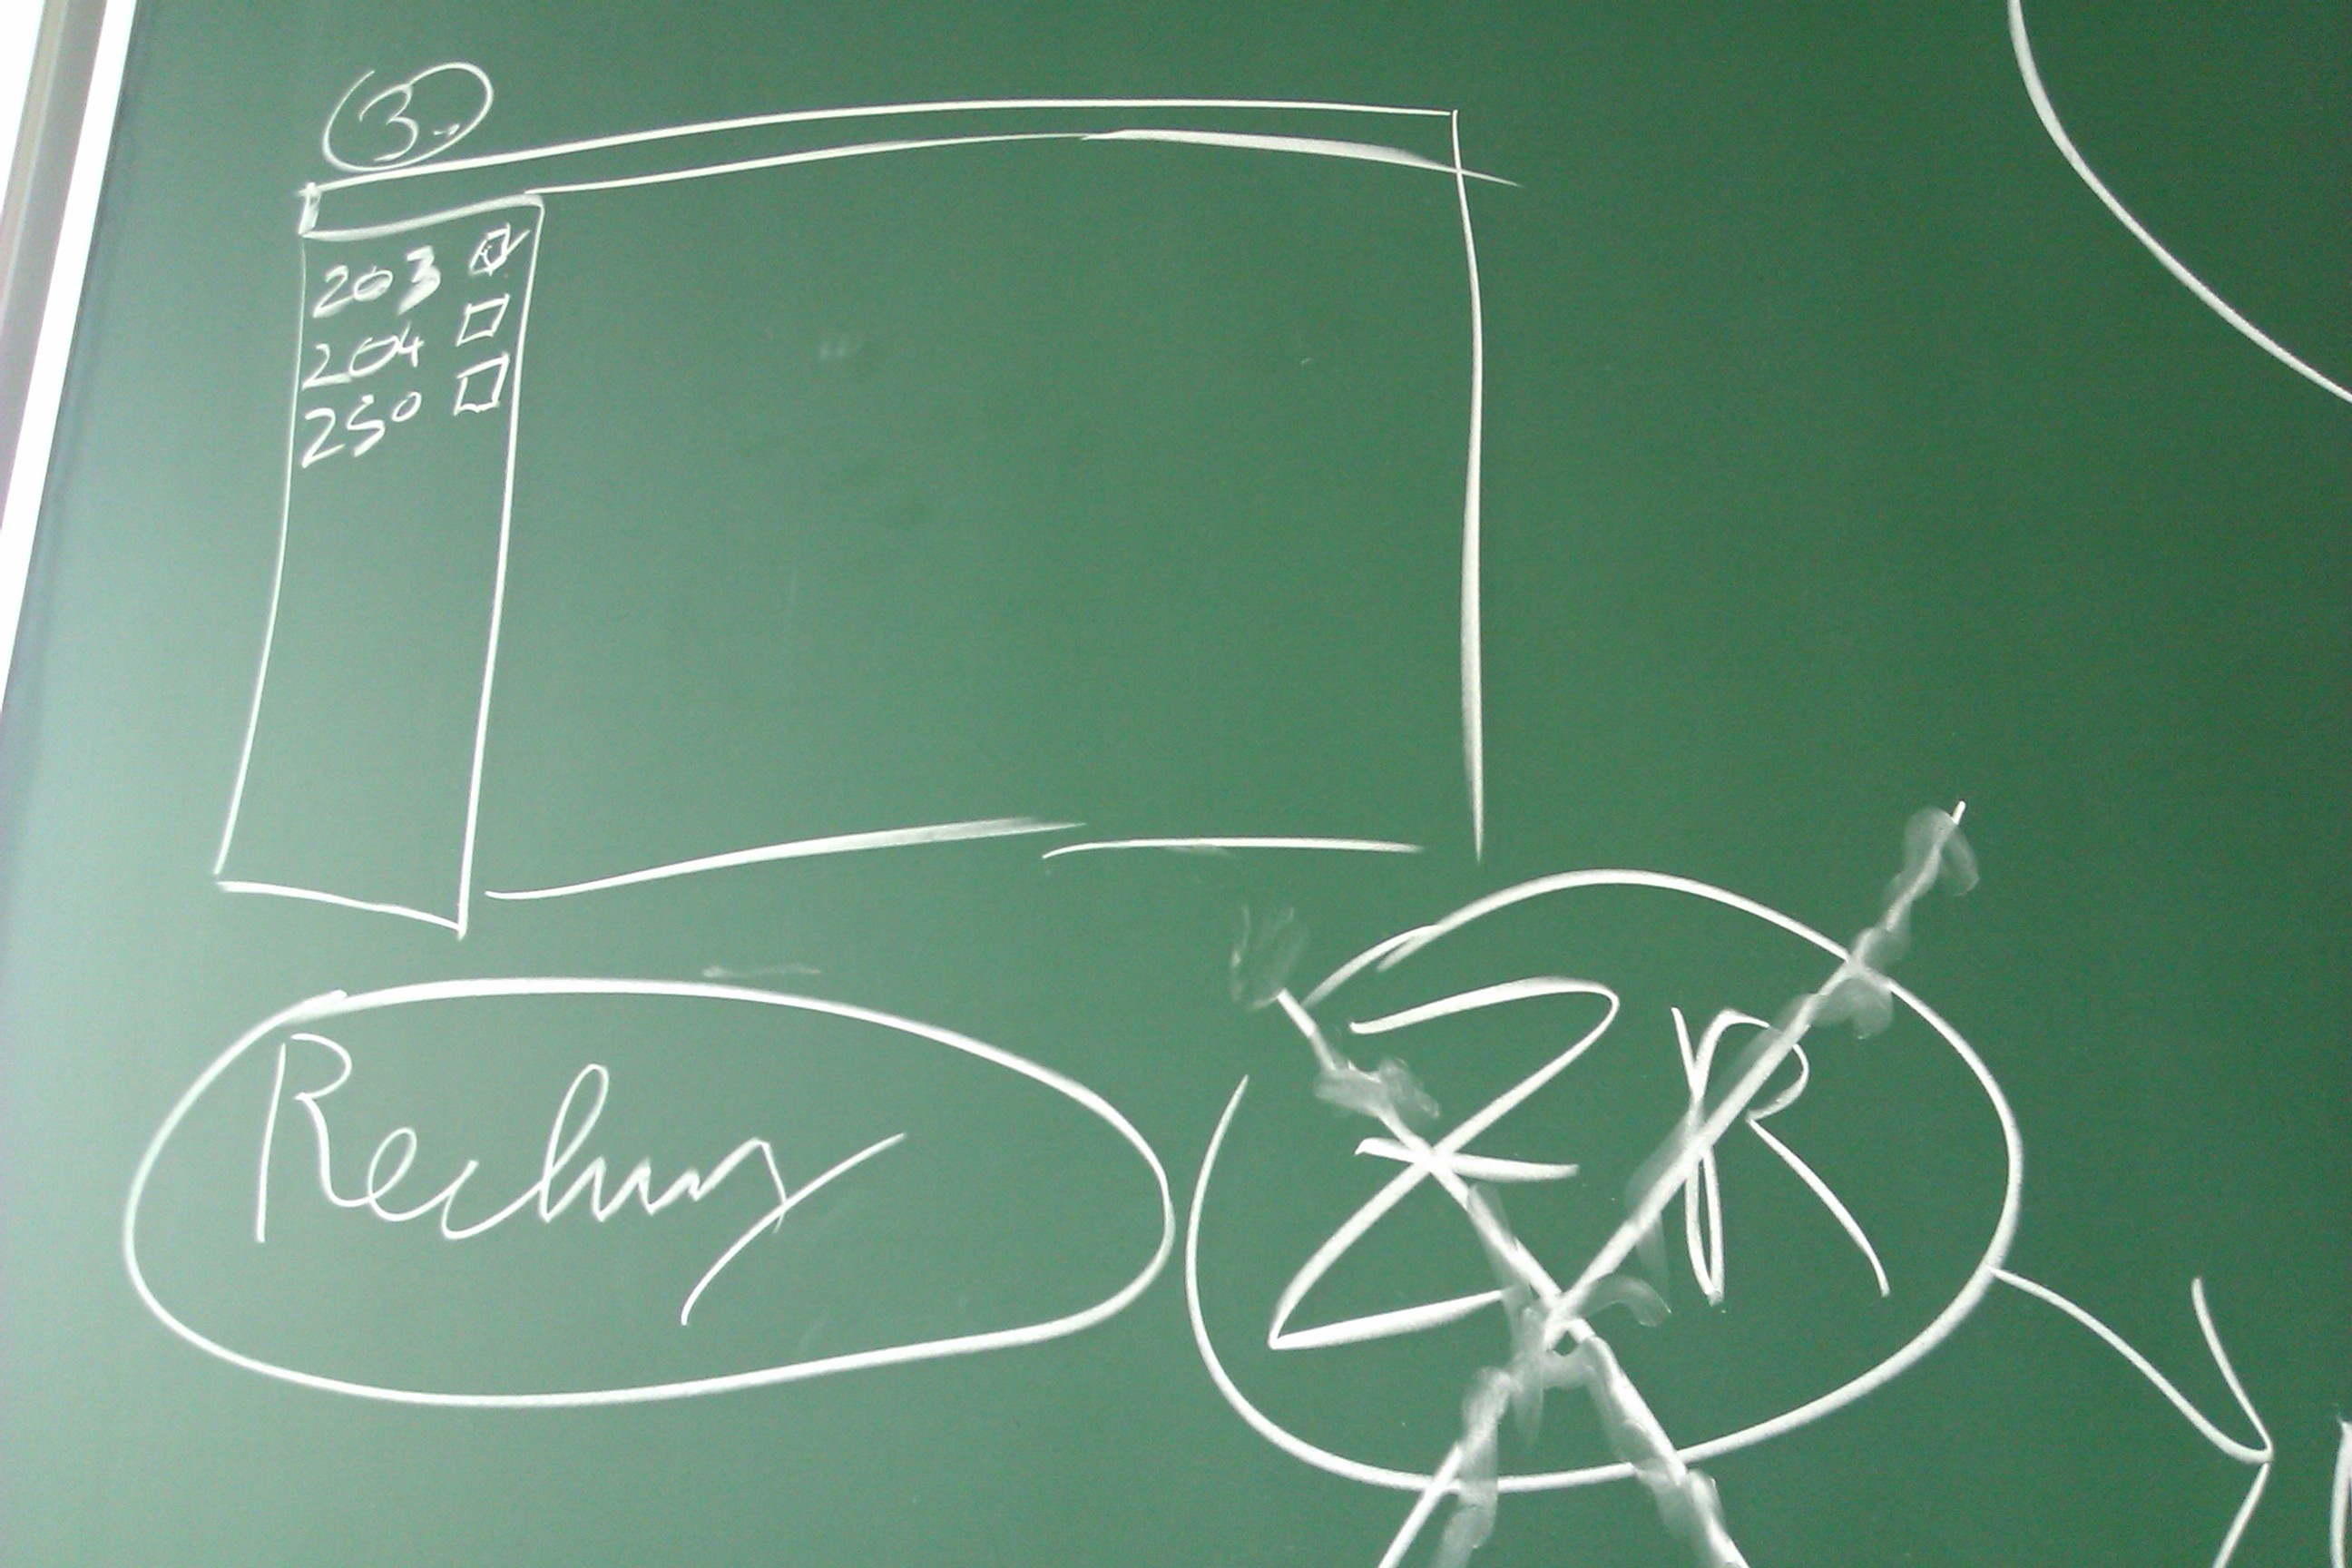 3.
203
204
250
Rechnung
ZR